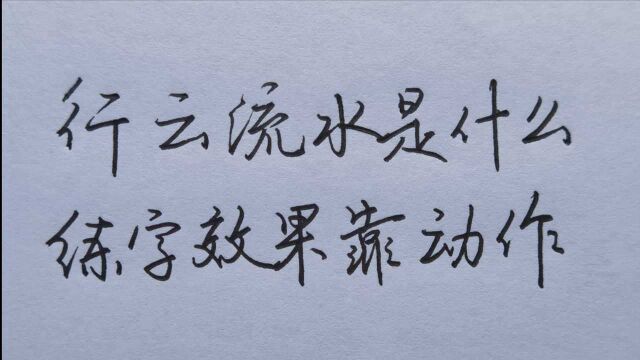 行云流水是什么
练字效果靠动作